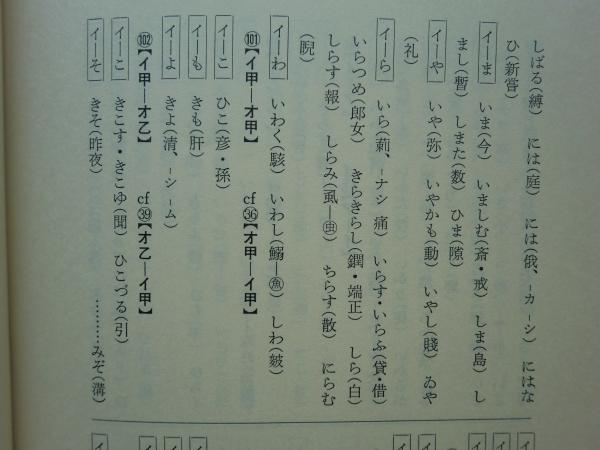 しばる(縛)　には(庭)　には(俄、-カ -シ)　にはな
ひ(新嘗)
イーま　いま(今)　いましむ(斎・戒)　しま(島)　し
まし(暫)　しまた(数)　ひま(隙)
イーや　いや(弥)　いやかも(動)　いやし(賤)　ゐや
(礼)
イーら　いら(莿、-ナシ 痛)　いらす・いらふ(貸・借)
いらつめ(郎女)　きらきらし(鐗・端正)　しら(白)
しらす(報)　しらみ(虱—㊥虫)　ちらす(散)　にらむ
(睨)
イーわ　いわく(駭)　いわし(鰯—魚)　しわ(皴)
101【イ甲—オ甲】　cf ㊱【オ甲—イ甲】
イーこ　ひこ(彦・孫)
イーも　きも(肝)
イーよ　きよ(清、-シ -ム)
102【イ甲—オ乙】　cf ㊴【オ乙—イ甲】
イーこ　きこす・きこゆ(聞)　ひこづる(引)
イーそ　きそ(昨夜)　…………みぞ(溝)